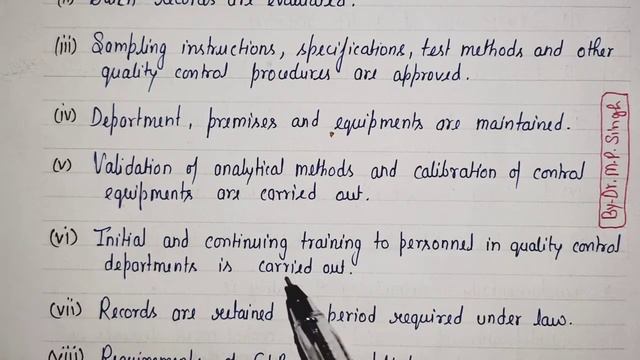 (ii) Batch records are evaluated.
(iii) Sampling instructions, specifications, test methods and other
quality control procedures are approved.
(iv) Department, premises and equipments are maintained.
(v) Validation of analytical methods and calibration of control
equipments are carried out.
(vi) Initial and continuing training to personnel in quality control
departments is carried out.
(vii) Records are retained period required under law.
(viii) Requirements of
By-Dr. M.P. Singh